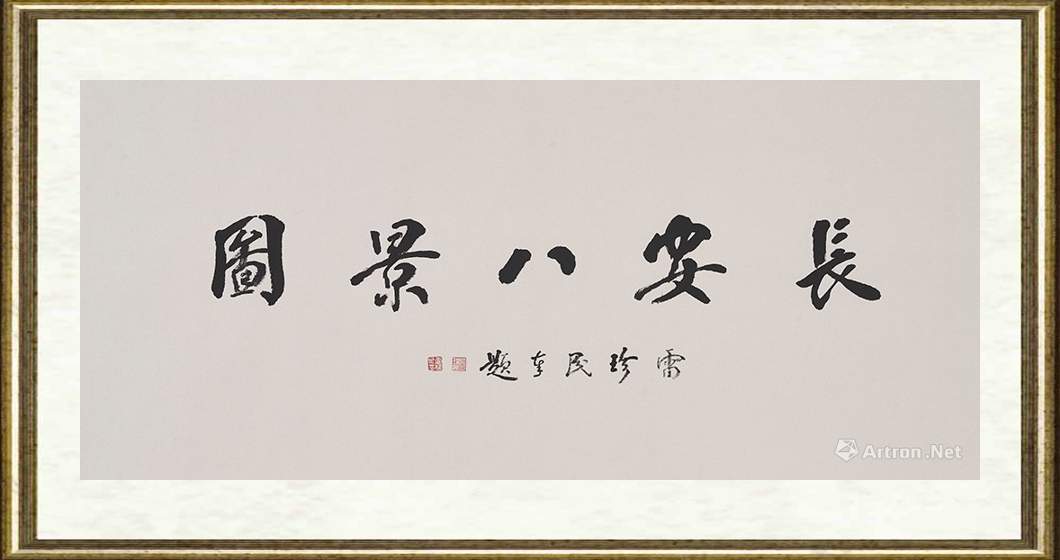 長安八景圖
雷珍民奉題
Artron.Net